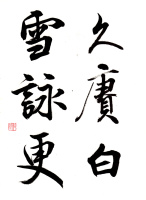 久賡白
雪詠更